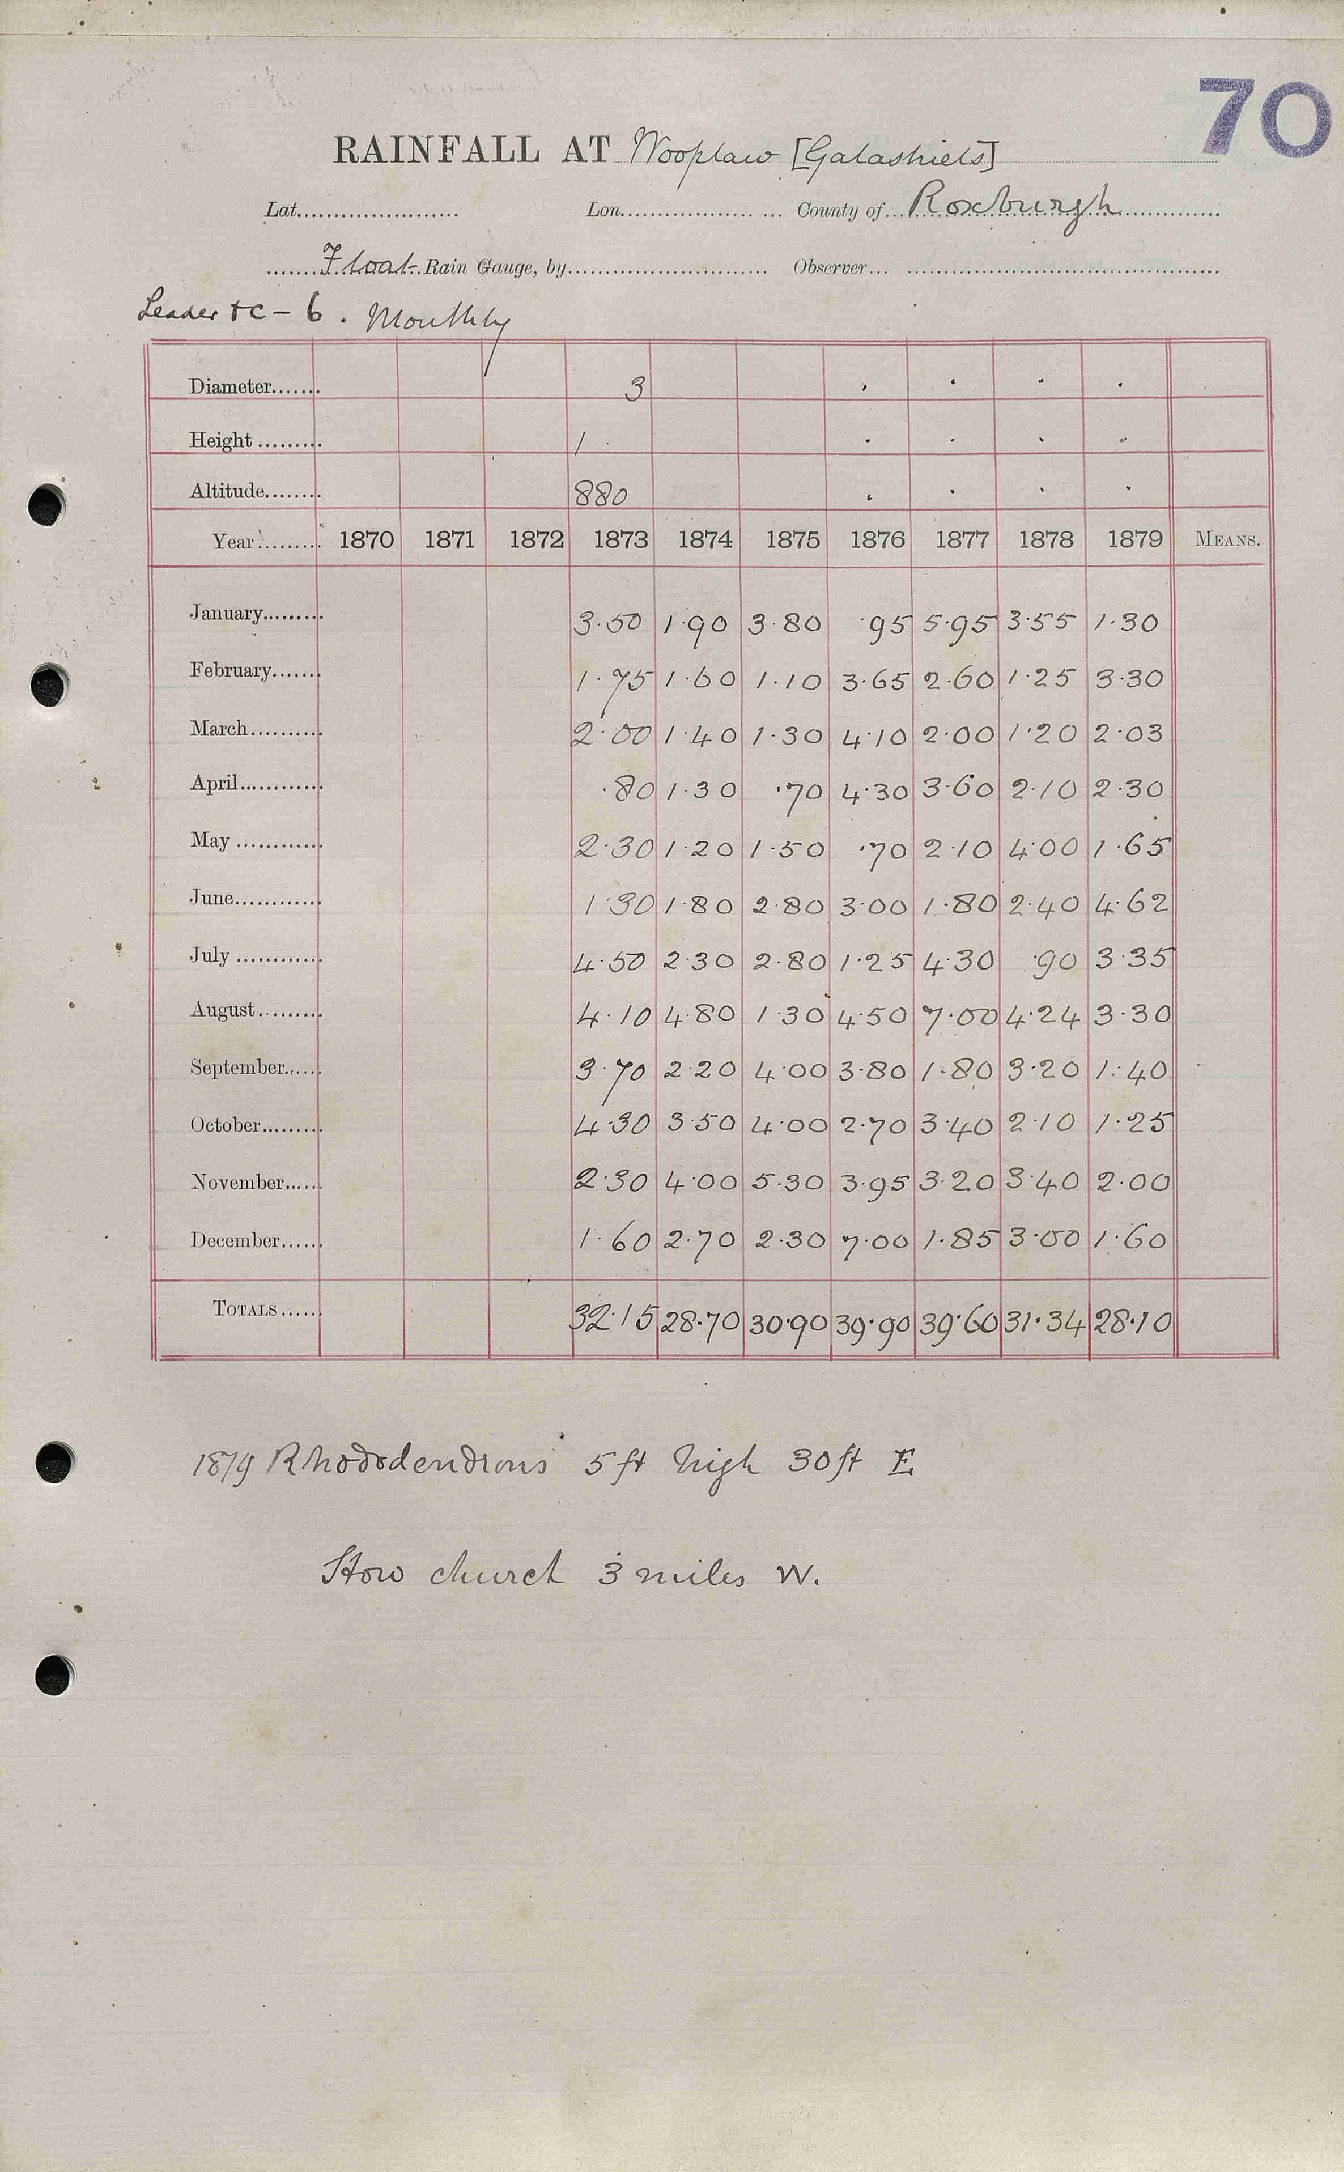 70
RAINFALL AT Wooplaw [Galashiels]
Lat. Lon. County of Roxburgh
Float Rain Gauge, by Observer
Leader &c - 6. Monthly
Diameter 3 . . . .
Height 1 . . . .
Altitude 880 . . . .
Year 1870 1871 1872 1873 1874 1875 1876 1877 1878 1879 MEANS.
January 3.50 1.90 3.80 .95 5.95 3.55 1.30
February 1.75 1.60 1.10 3.65 2.60 1.25 3.30
March 2.00 1.40 1.30 4.10 2.00 1.20 2.03
April .80 1.30 .70 4.30 3.60 2.10 2.30
May 2.30 1.20 1.50 .70 2.10 4.00 1.65
June 1.30 1.80 2.80 3.00 1.80 2.40 4.62
July 4.50 2.30 2.80 1.25 4.30 .90 3.35
August 4.10 4.80 1.30 4.50 7.00 4.24 3.30
September 3.70 2.20 4.00 3.80 1.80 3.20 1.40
October 4.30 3.50 4.00 2.70 3.40 2.10 1.25
November 2.30 4.00 5.30 3.95 3.20 3.40 2.00
December 1.60 2.70 2.30 7.00 1.85 3.00 1.60
TOTALS 32.15 28.70 30.90 39.90 39.60 31.34 28.10
1879 Rhododendrons 5ft high 30ft E
Stow church 3 miles W.